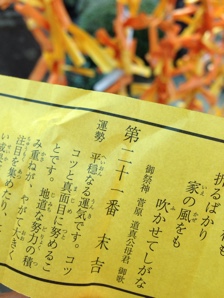 折るばかり
家の風をも
吹かせてしがな
御祭神 菅原 道真公母君 御歌
第二十一番 末吉
運勢 平穏なる運気です。コツ
コツと真面目に努めるこ
とです。地道な努力の積
み重ねが、やがて大きく
注目を集めたり、